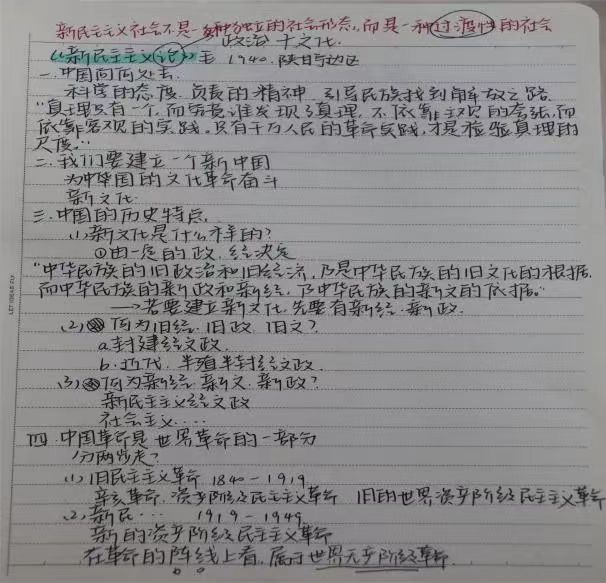 新民主主义社会不是一种独立的社会形态,而是一种过渡性的社会
政治+文化.
《新民主主义论》毛 1940.陕甘宁边区
一.中国向何处去.
科学的态度.负责的精神.引导民族找到解放之路.
"真理只有一个,而究竟谁发现了真理,不依靠主观的夸张,而
依靠客观的实践。只有千万人民的革命实践,才是检验真理的
尺度."
二.我们要建立一个新中国
为中华国的文化革命奋斗
新文化.
三.中国的历史特点.
(1)新文化是什么样的?
①由一定的政.经决定
"中华民族的旧政治和旧经济,乃是中华民族的旧文化的根据.
而中华民族的新政和新经,乃中华民族的新文的依据."
→若要建立新文化,先要有新经.新政.
(2)何为旧经.旧政.旧文?
a.封建经文政.
b.近代.半殖半封经文政.
(3)何为新经.新文.新政?
新民主主义经文政
社会主义....
四.中国革命是世界革命的一部分
分两步走?
(1)旧民主主义革命 1840-1919.
辛亥革命,资产阶级民主主义革命 旧的世界资产阶级民主主义革命
(2)新民... 1919-1949
新的资产阶级民主主义革命
在革命的阵线上看,属于世界无产阶级革命.
LET IDEAS FLY